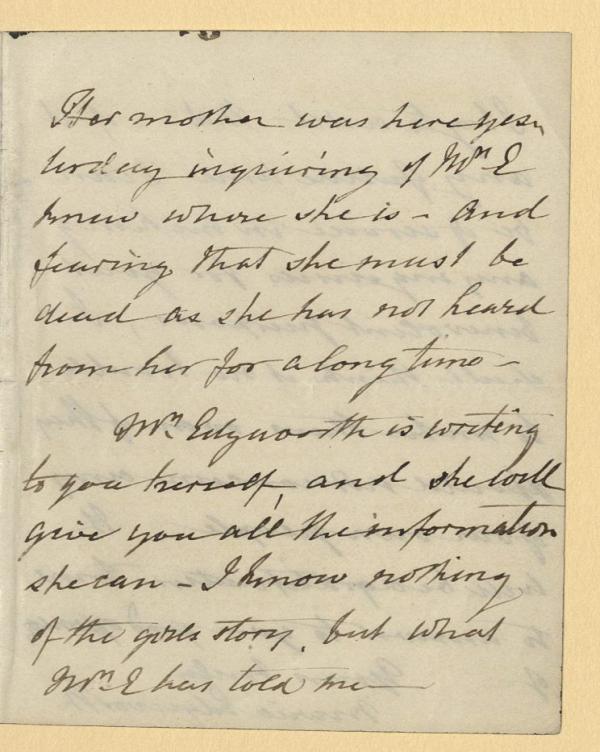 Her mother was here yes
terday inquiring if Mrs. E
knew where she is – and
fearing that she must be
dead as she has not heard
from her for a long time –
Mrs. Edgworth is writing
to you herself, and she will
give you all the information
she can – I know nothing
of the girls story, but what
Mrs. E has told me —